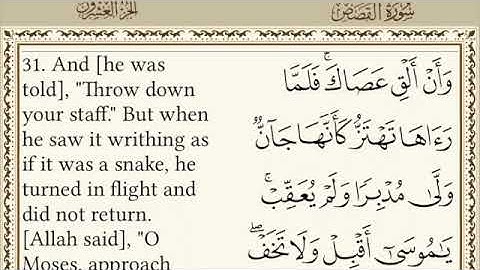 الجزء العشرون
سورة القصص
31. And [he was
told], "Throw down
your staff." But when
he saw it writhing as
if it was a snake, he
turned in flight and
did not return.
[Allah said], "O
Moses, approach
وَأَنْ أَلْقِ عَصَاكَ ۖ فَلَمَّا
رَءَاهَا تَهْتَزُّ كَأَنَّهَا جَآنٌّ
وَلَّىٰ مُدْبِرًا وَلَمْ يُعَقِّبْ ۚ
يَٰمُوسَىٰٓ أَقْبِلْ وَلَا تَخَفْ ۖ